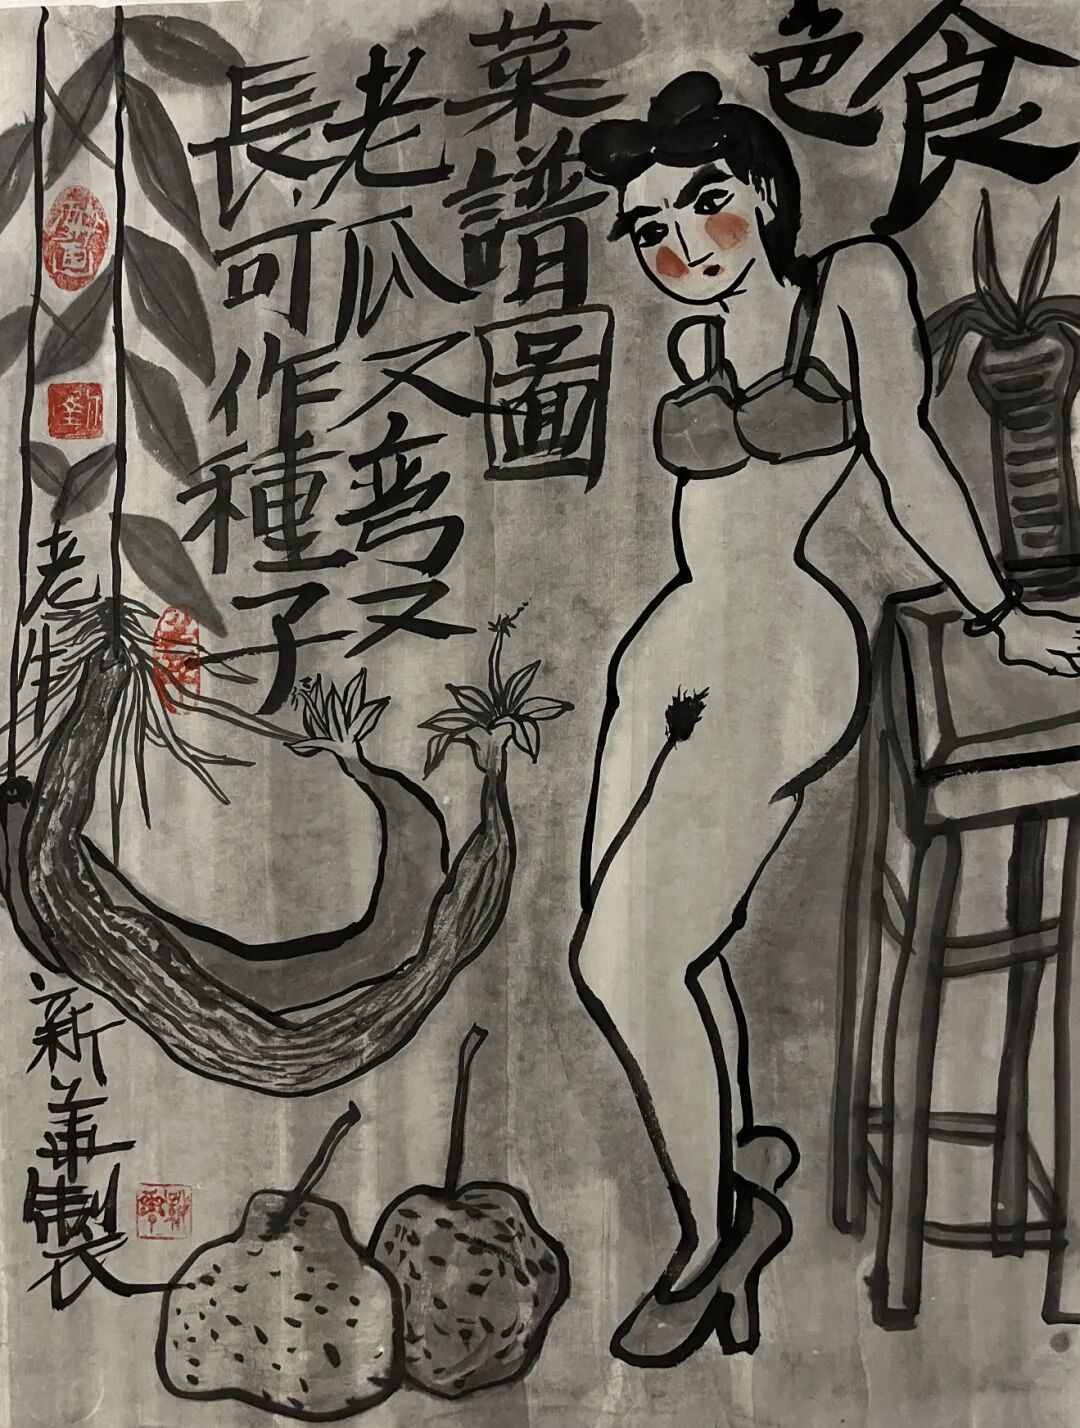 食色
菜譜圖
老瓜又彎又
長可作種子
老
新 製